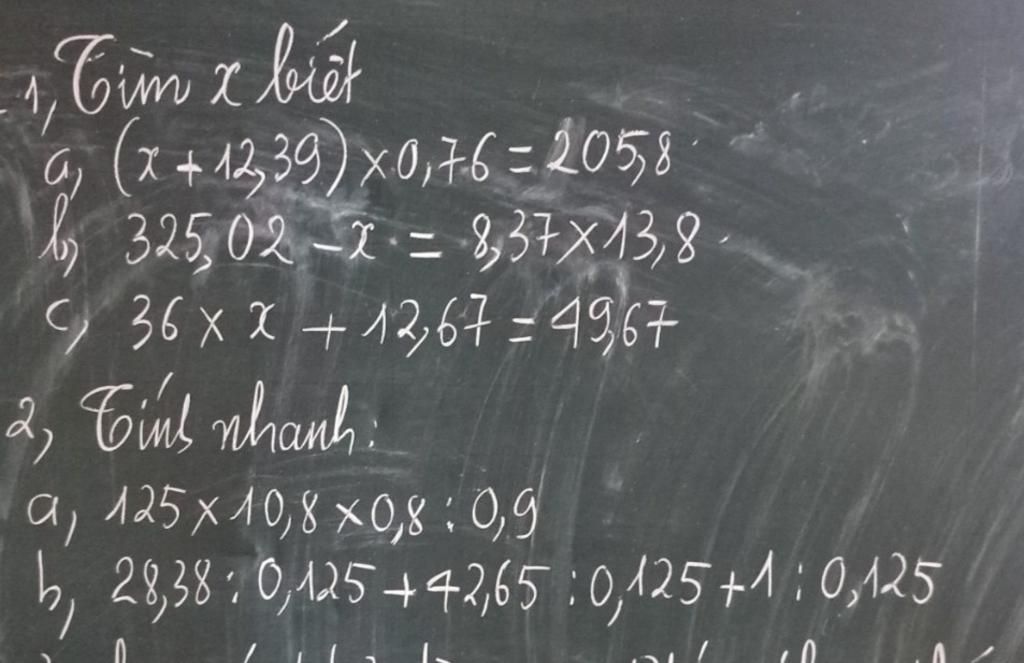 1, Tìm x biết
a, (x + 12,39) × 0,76 = 205,8
b, 325,02 - x = 8,37 × 13,8
c, 36 × x + 12,67 = 49,67
2, Tính nhanh:
a, 125 × 10,8 × 0,8 : 0,9
b, 28,38 : 0,125 + 42,65 : 0,125 + 1 : 0,125